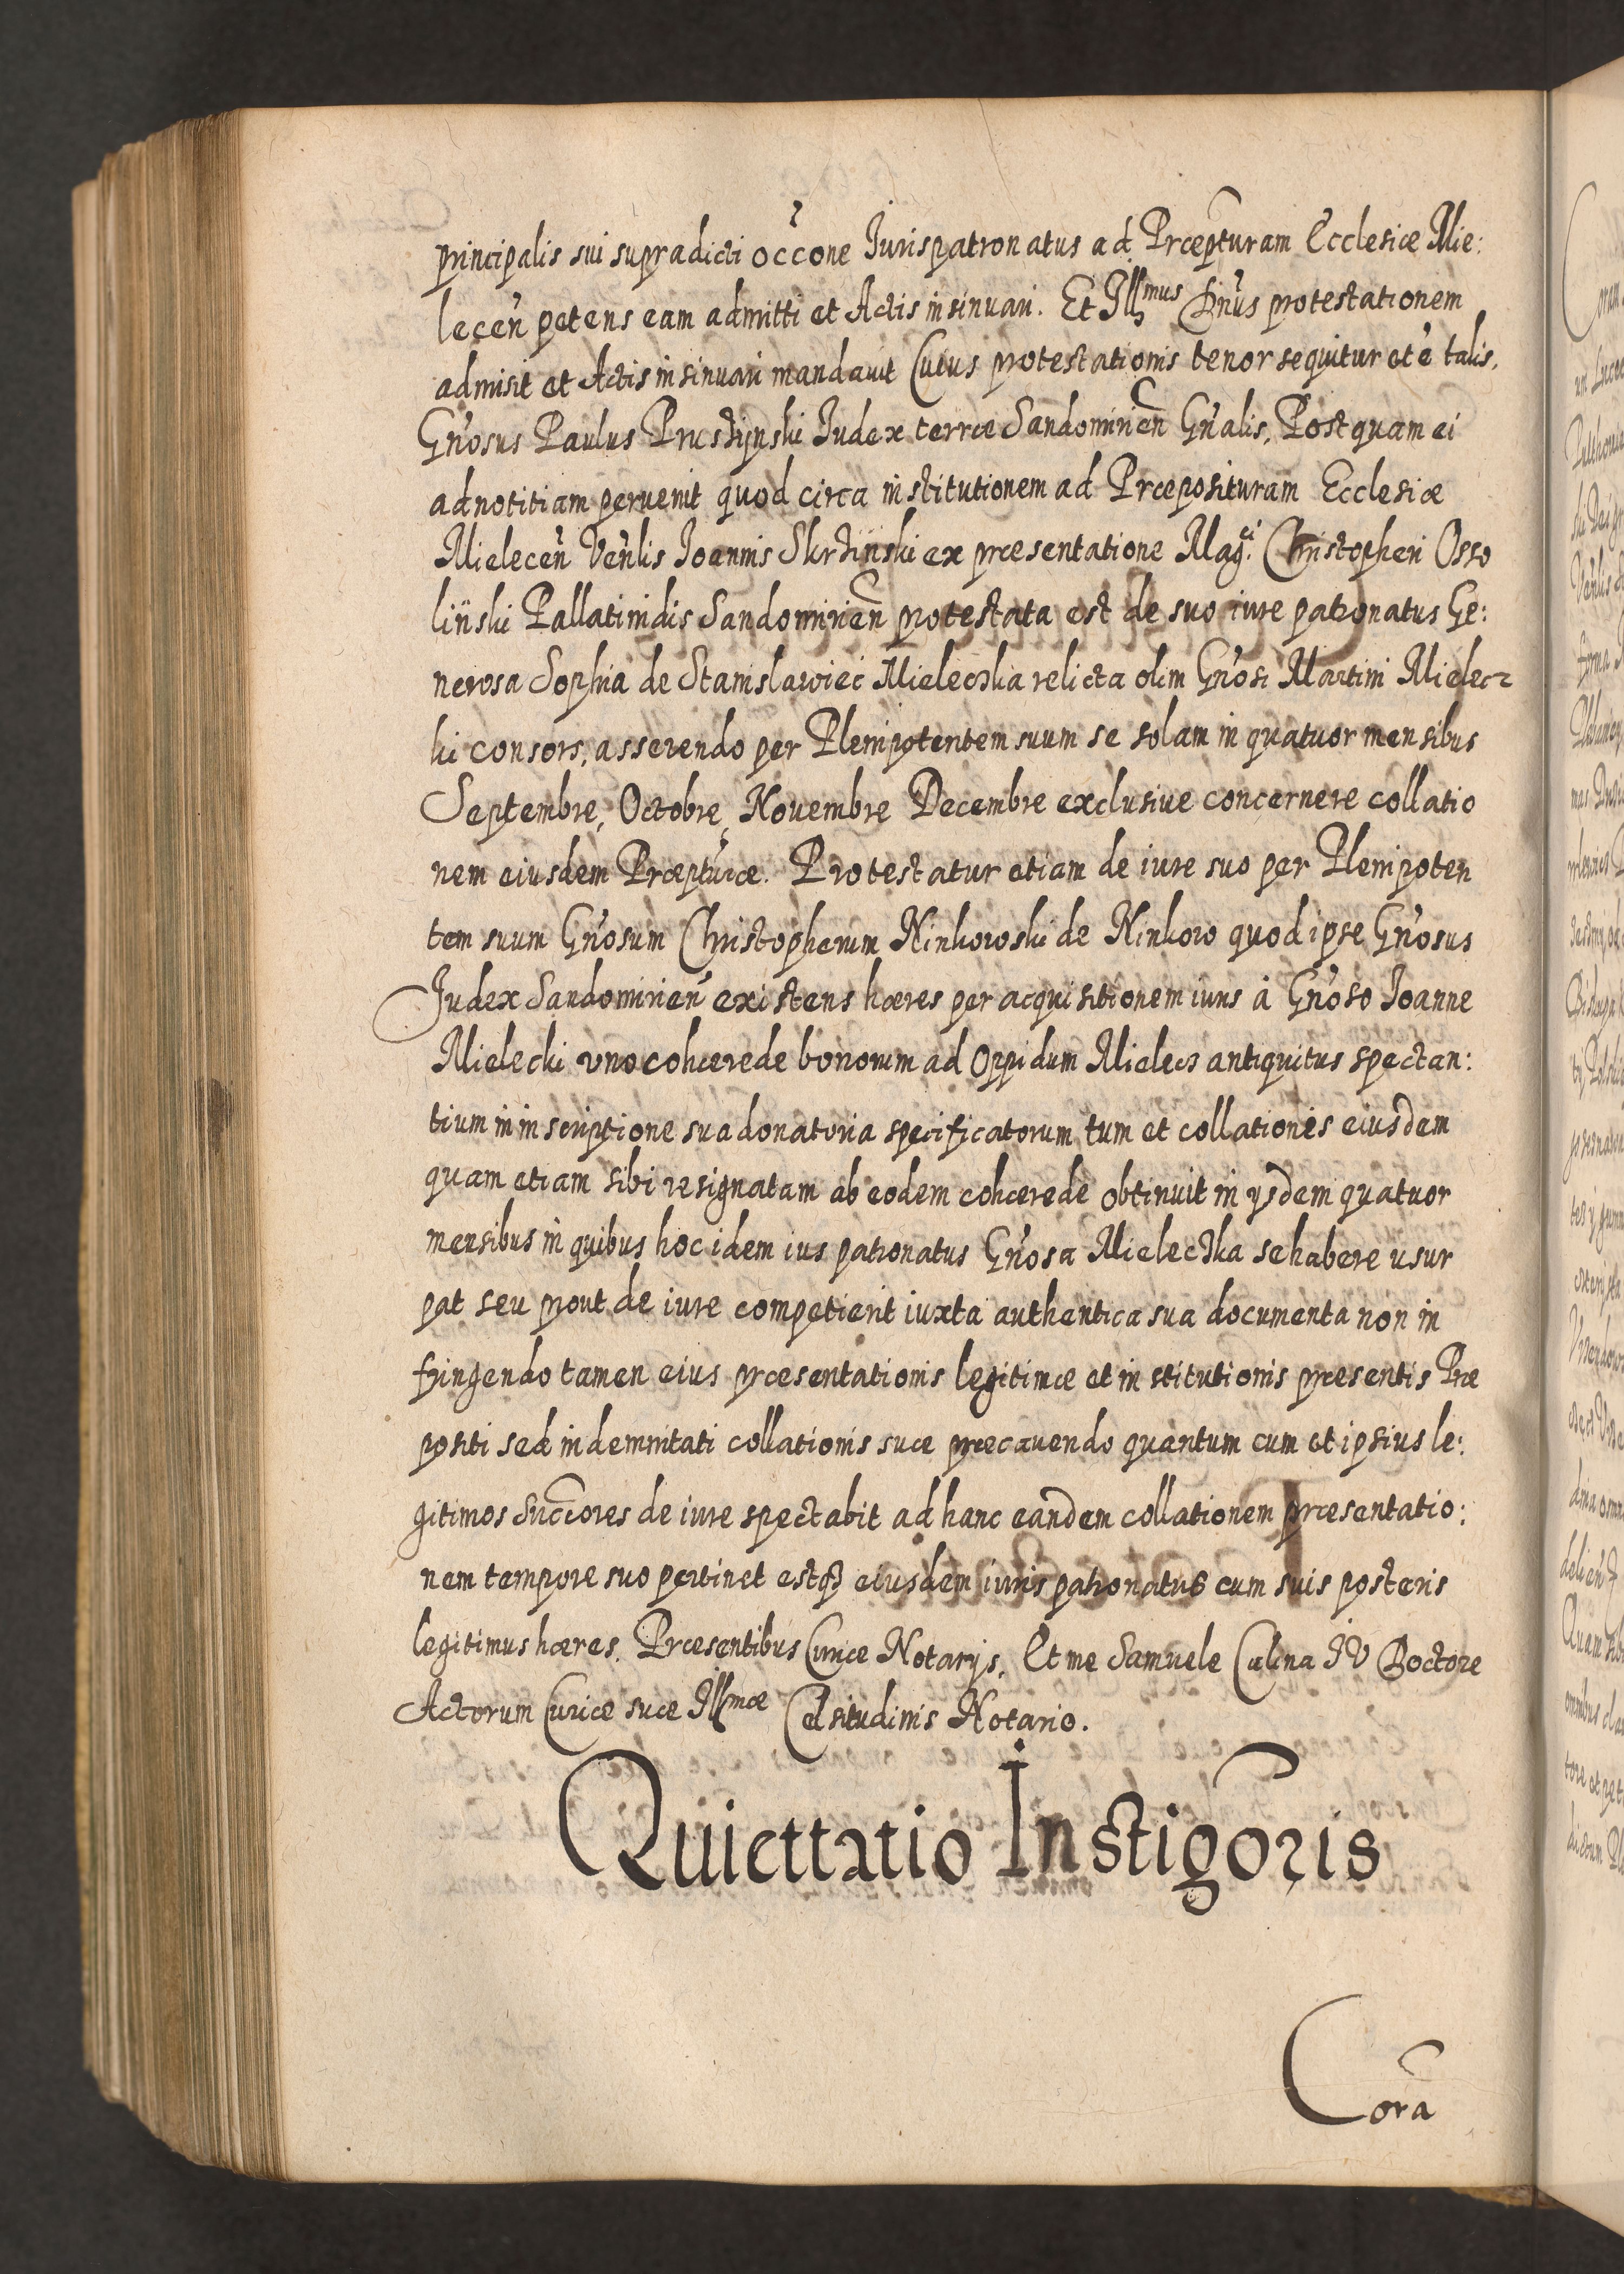 principalis sui supradicti occ̄one Iurispatronatus ad Præpt̄uram Ecclesiæ Mie:
lecen̄ petens eam admitti et Actis insinuari. Et Illmus Dn̄us protestationem
admisit et Actis insinuari mandauit Cuius protestationis tenor sequitur et ē talis.
Gn̄osus Paulus Prusżÿnski Iudex terræ Sandomirien̄ Gn̄alis, Postquam ei
ad notitiam peruenit quod circa institutionem ad Præposituram Ecclesiæ
Mielecen̄ Ven̄lis Ioannis Skrżinski ex præsentatione Mag.ci Christopheri Osso
liński Pallatinidis Sandomirien̄ protestata est de suo iure patronatus Ge:
nerosa Sophia de Stanislawiec Mieleczka relicta olim Gn̄osi Martini Mielecz
ki consors, asserendo per Plenipotentem suum se solam in quatuor mensibus
Septembre, Octobre, Nouembre Decembre exclusiue concernere collatio
nem eiusdem Præpt̄uræ. Protestatur etiam de iure suo per Plenipoten
tem suum Gn̄osum Christopherum Ninkowski de Ninkow quod ipse Gn̄osus
Iudex Sandomirien̄ existens hæres per acquisitionem iuris à Gn̄oso Ioanne
Mielecki vno cohærede bonorum ad Oppidum Mielecz antiquitus spectan:
tium in inscriptione sua donatoria specificatorum tum et collationis eiusdem
quam etiam sibi resignatam ab eodem cohærede obtinuit in ysdem quatuor
mensibus in quibus hoc idem ius patronatus Gn̄osa Mieleczka se habere usur
pat seu prout de iure competierit iuxta authentica sua documenta non in
fringendo tamen eius præsentationis legitimæ et institutionis præsentis Præ
positi sed indemnitati collationis suæ præcauendo quantum cum et ipsius le:
gitimos Succ̄ores de iure spectabit ad hanc eandem collationem præsentatio:
nem tempore suo pertinet estq3 eiusdem iuris patronatus cum suis posteris
legitimus hæres. Præsentibus Curiæ Notarijs. Et me Samuele Culina IV Doctore
Actorum Curiæ suæ Illmæ Celsitudinis Notario.
Quiettatio Instigoris
Corā